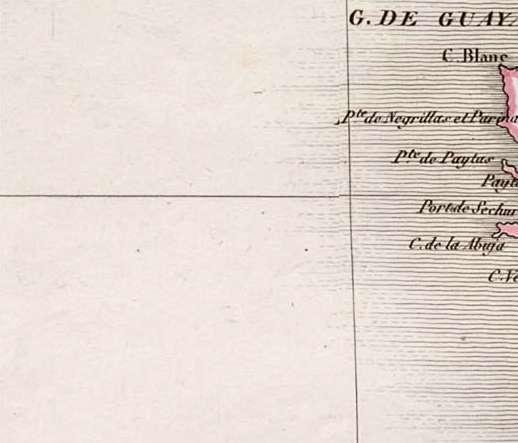 G. DE GUAYA
C. Blanc
Pte de Negrillas et Parina
Pte de Paytas
Payta
Port de Sechur
C. de la Abuja
C. Ve